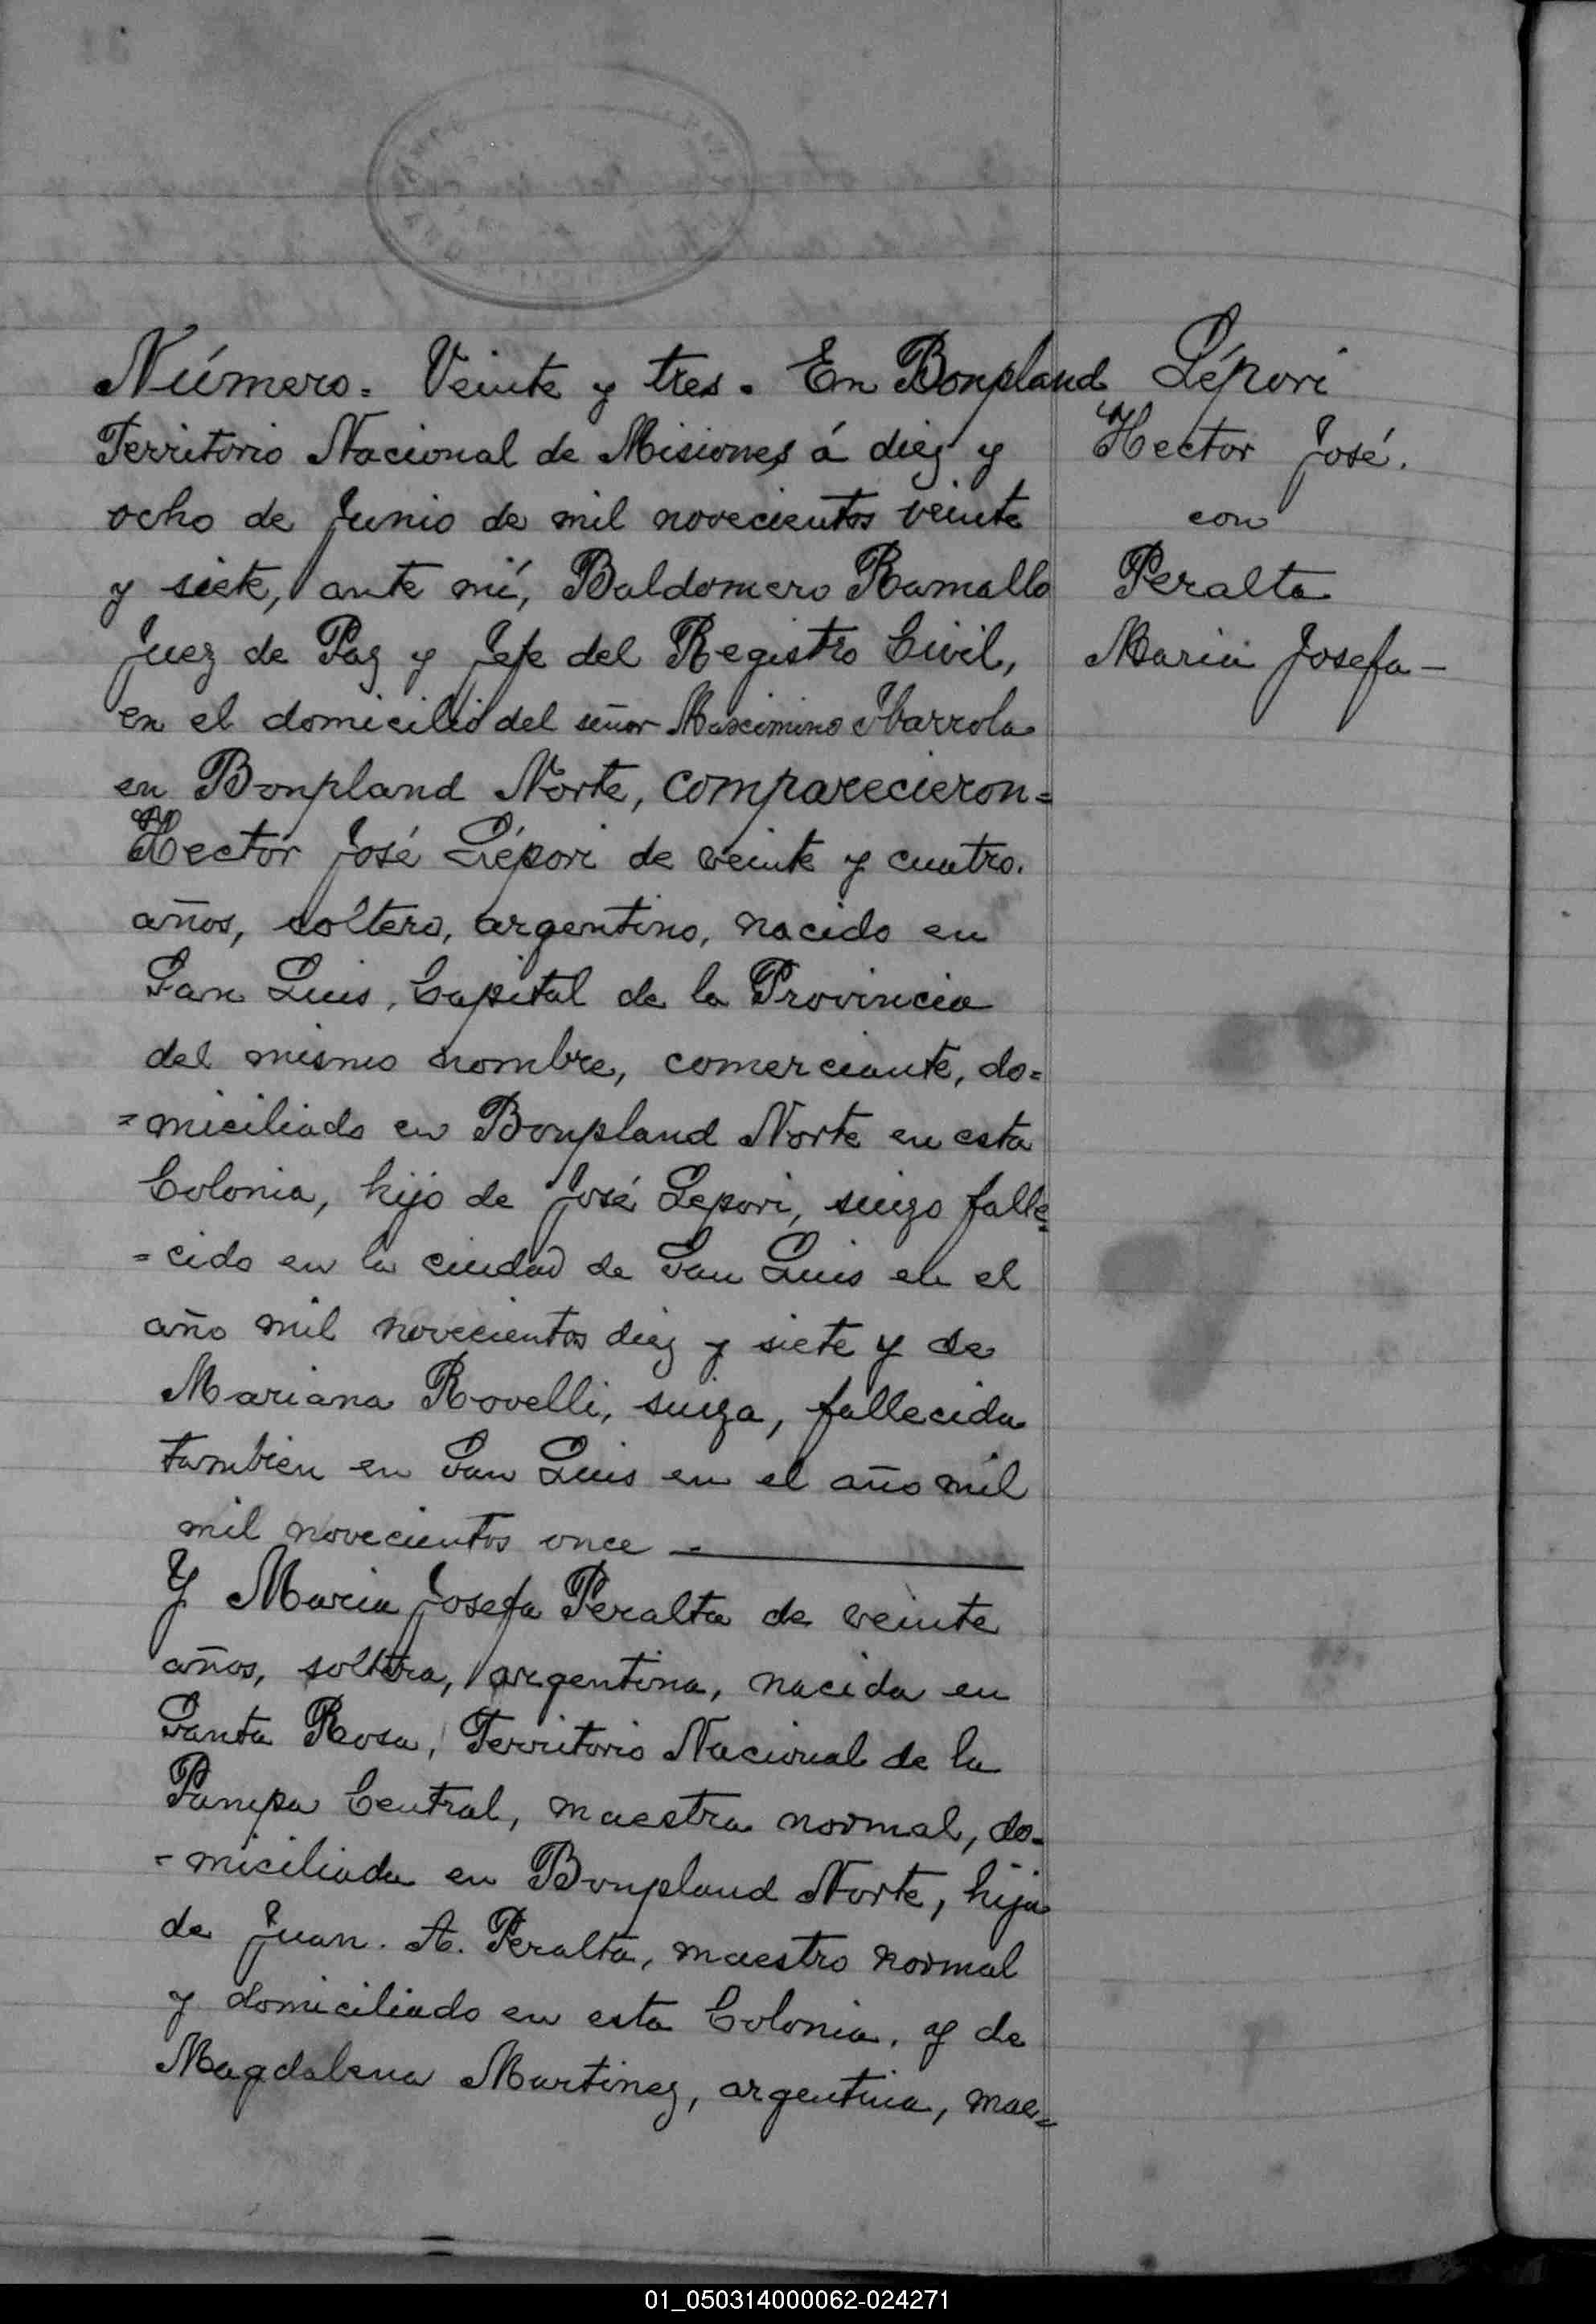 Número = Veinte y tres. En Bonpland
Territorio Nacional de Misiones á diez y
ocho de Junio de mil novecientos veinte
y siete, ante mí, Baldomero Ramallo
Juez de Paz y Jefe del Registro Civil,
en el domicilio del señor Mascimino Ibarrola
en Bonpland Norte, comparecieron =
Hector José Lépori de veinte y cuatro.
años, soltero, argentino, nacido en
San Luis, Capital de la Provincia
del mismo nombre, comerciante, do=
=miciliado en Bonpland Norte en esta
Colonia, hijo de José Lepori, suizo falle=
=cido en la ciudad de San Luis en el
año mil novecientos diez y siete y de
Mariana Rovelli, suiza, fallecida
tambien en San Luis en el año mil
mil novecientos once —
Y Maria Josefa Peralta de veinte
años, soltera, argentina, nacida en
Santa Rosa, Territorio Nacional de la
Pampa Central, maestra normal, do=
=miciliada en Bonpland Norte, hija
de Juan. A. Peralta, maestro normal
y domiciliado en esta Colonia, y de
Magdalena Martinez, argentina, maes=
Lépori
Hector José.
con
Peralta
Maria Josefa —
01_050314000062-024271